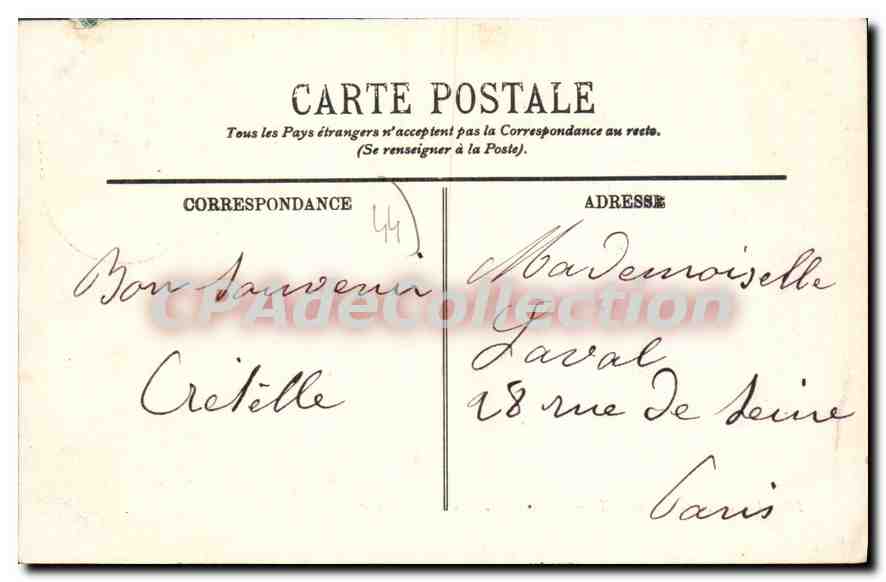 CARTE POSTALE
Tous les Pays étrangers n'acceptent pas la Correspondance au recto.
(Se renseigner à la Poste).
CORRESPONDANCE
ADRESSE
44
Bon Souvenir
Crételle
Mademoiselle
Laval
28 rue de Seine
Paris
CPAdeCollection